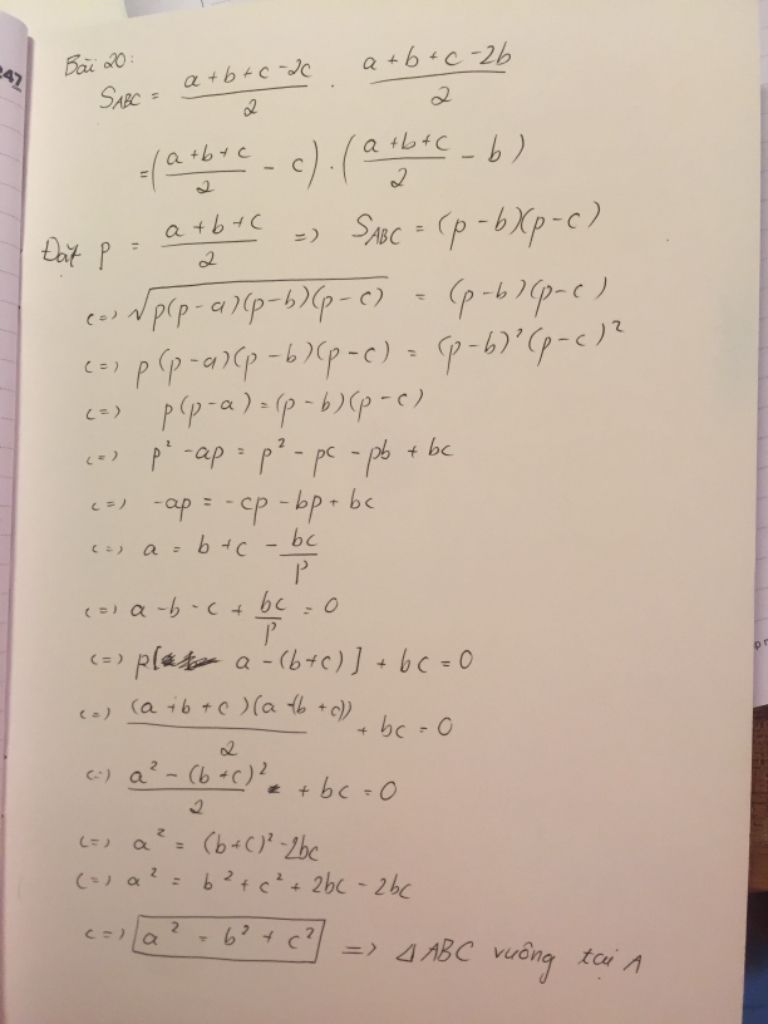 247
Bài 20:
S_ABC = (a+b+c-2c)/2 . (a+b+c-2b)/2
= ((a+b+c)/2 - c) . ((a+b+c)/2 - b)
Đặt p = (a+b+c)/2 => S_ABC = (p-b)(p-c)
<=> √(p(p-a)(p-b)(p-c)) = (p-b)(p-c)
<=> p(p-a)(p-b)(p-c) = (p-b)²(p-c)²
<=> p(p-a) = (p-b)(p-c)
<=> p² - ap = p² - pc - pb + bc
<=> -ap = -cp - bp + bc
<=> a = b + c - bc/p
<=> a - b - c + bc/p = 0
<=> p[a - (b+c)] + bc = 0
<=> (a+b+c)(a-(b+c))/2 + bc = 0
<=> (a² - (b+c)²)/2 + bc = 0
<=> a² = (b+c)² - 2bc
<=> a² = b² + c² + 2bc - 2bc
<=> a² = b² + c² => Δ ABC vuông tại A